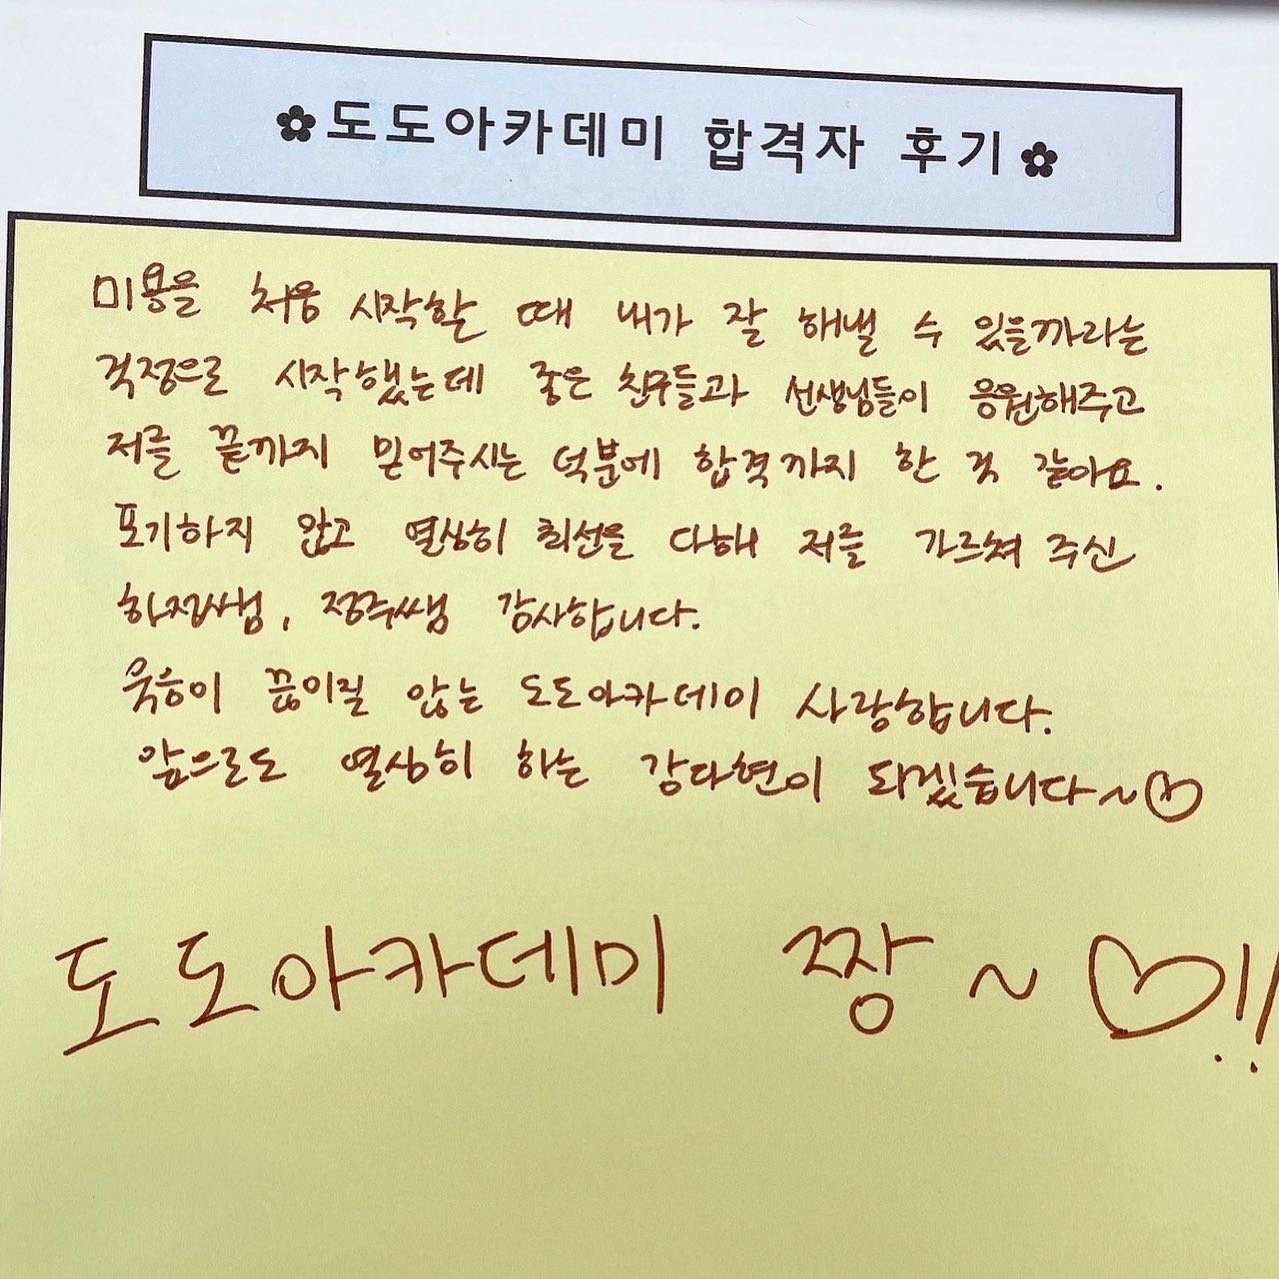 ✿도도아카데미 합격자 후기✿
미용을 처음 시작할 때 내가 잘 해낼 수 있을까라는
걱정으로 시작했는데 좋은 친구들과 선생님들이 응원해주고
저를 끝까지 믿어주시는 덕분에 합격까지 한 것 같아요.
포기하지 않고 열심히 최선을 다해 저를 가르쳐 주신
하정쌤, 정주쌤 감사합니다.
웃음이 끊이질 않는 도도아카데미 사랑합니다.
앞으로도 열심히 하는 강다현이 되겠습니다~♡
도도아카데미 짱~♡!!